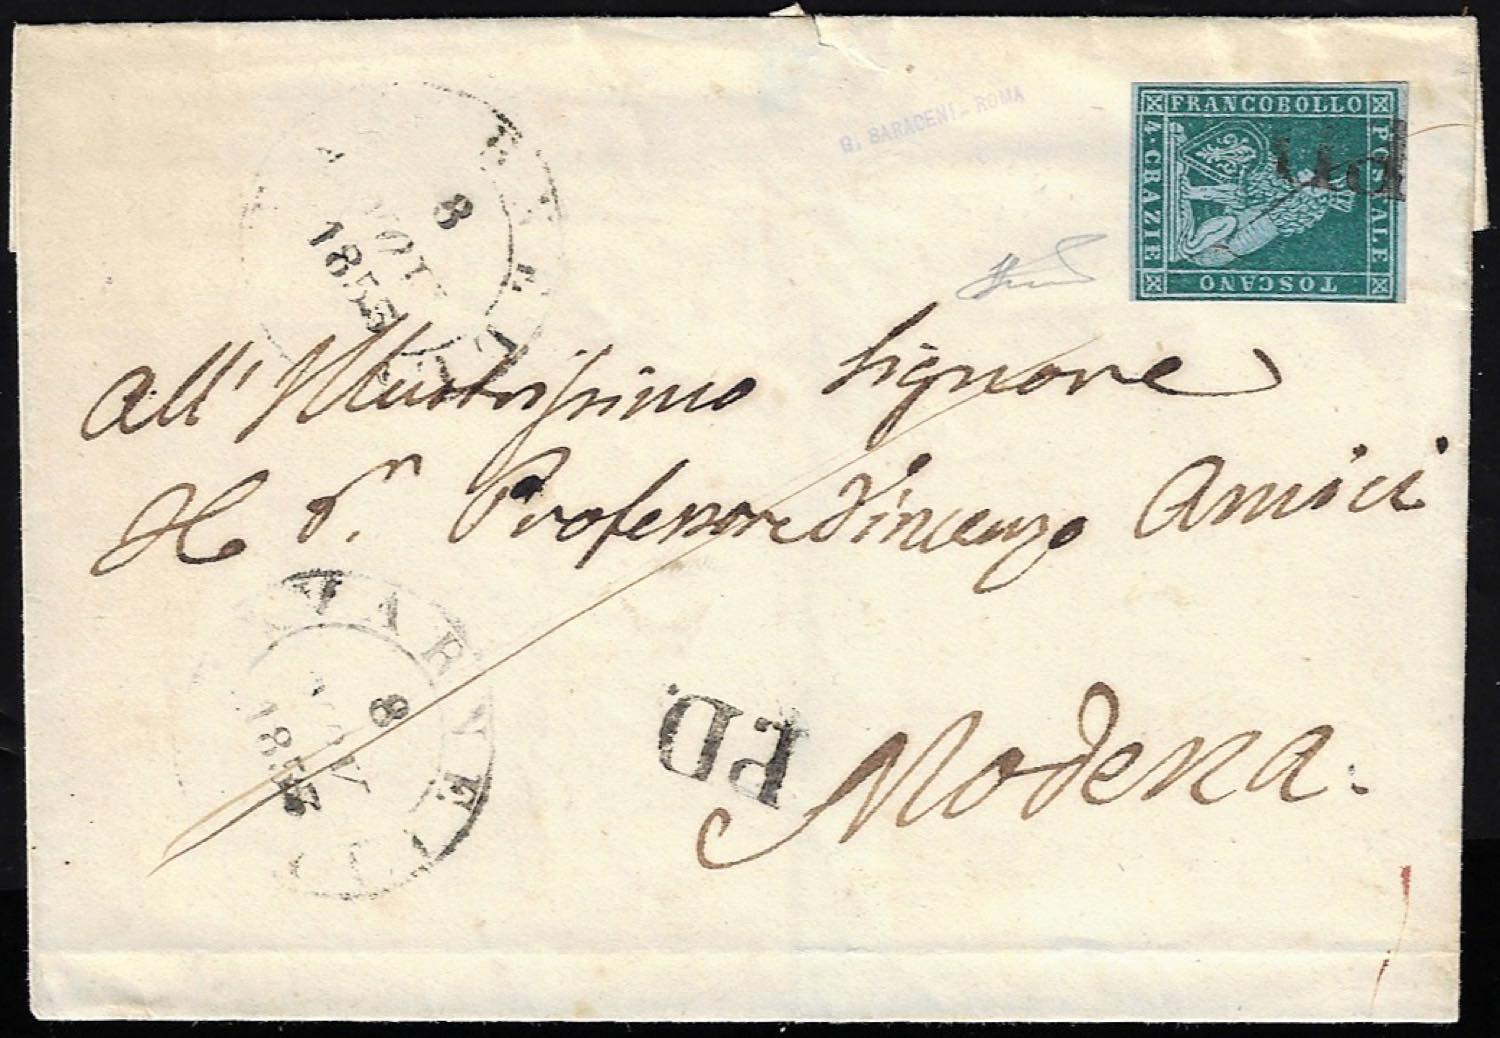 G. BARADENI - ROMA
FRANCOBOLLO
POSTALE
TOSCANO
4 · CRAZIE
8
1853
All' Illustrissimo Signore
Il Sn. Professore Vincenzo Amici
8
NOV
185
P.D.
Modena.